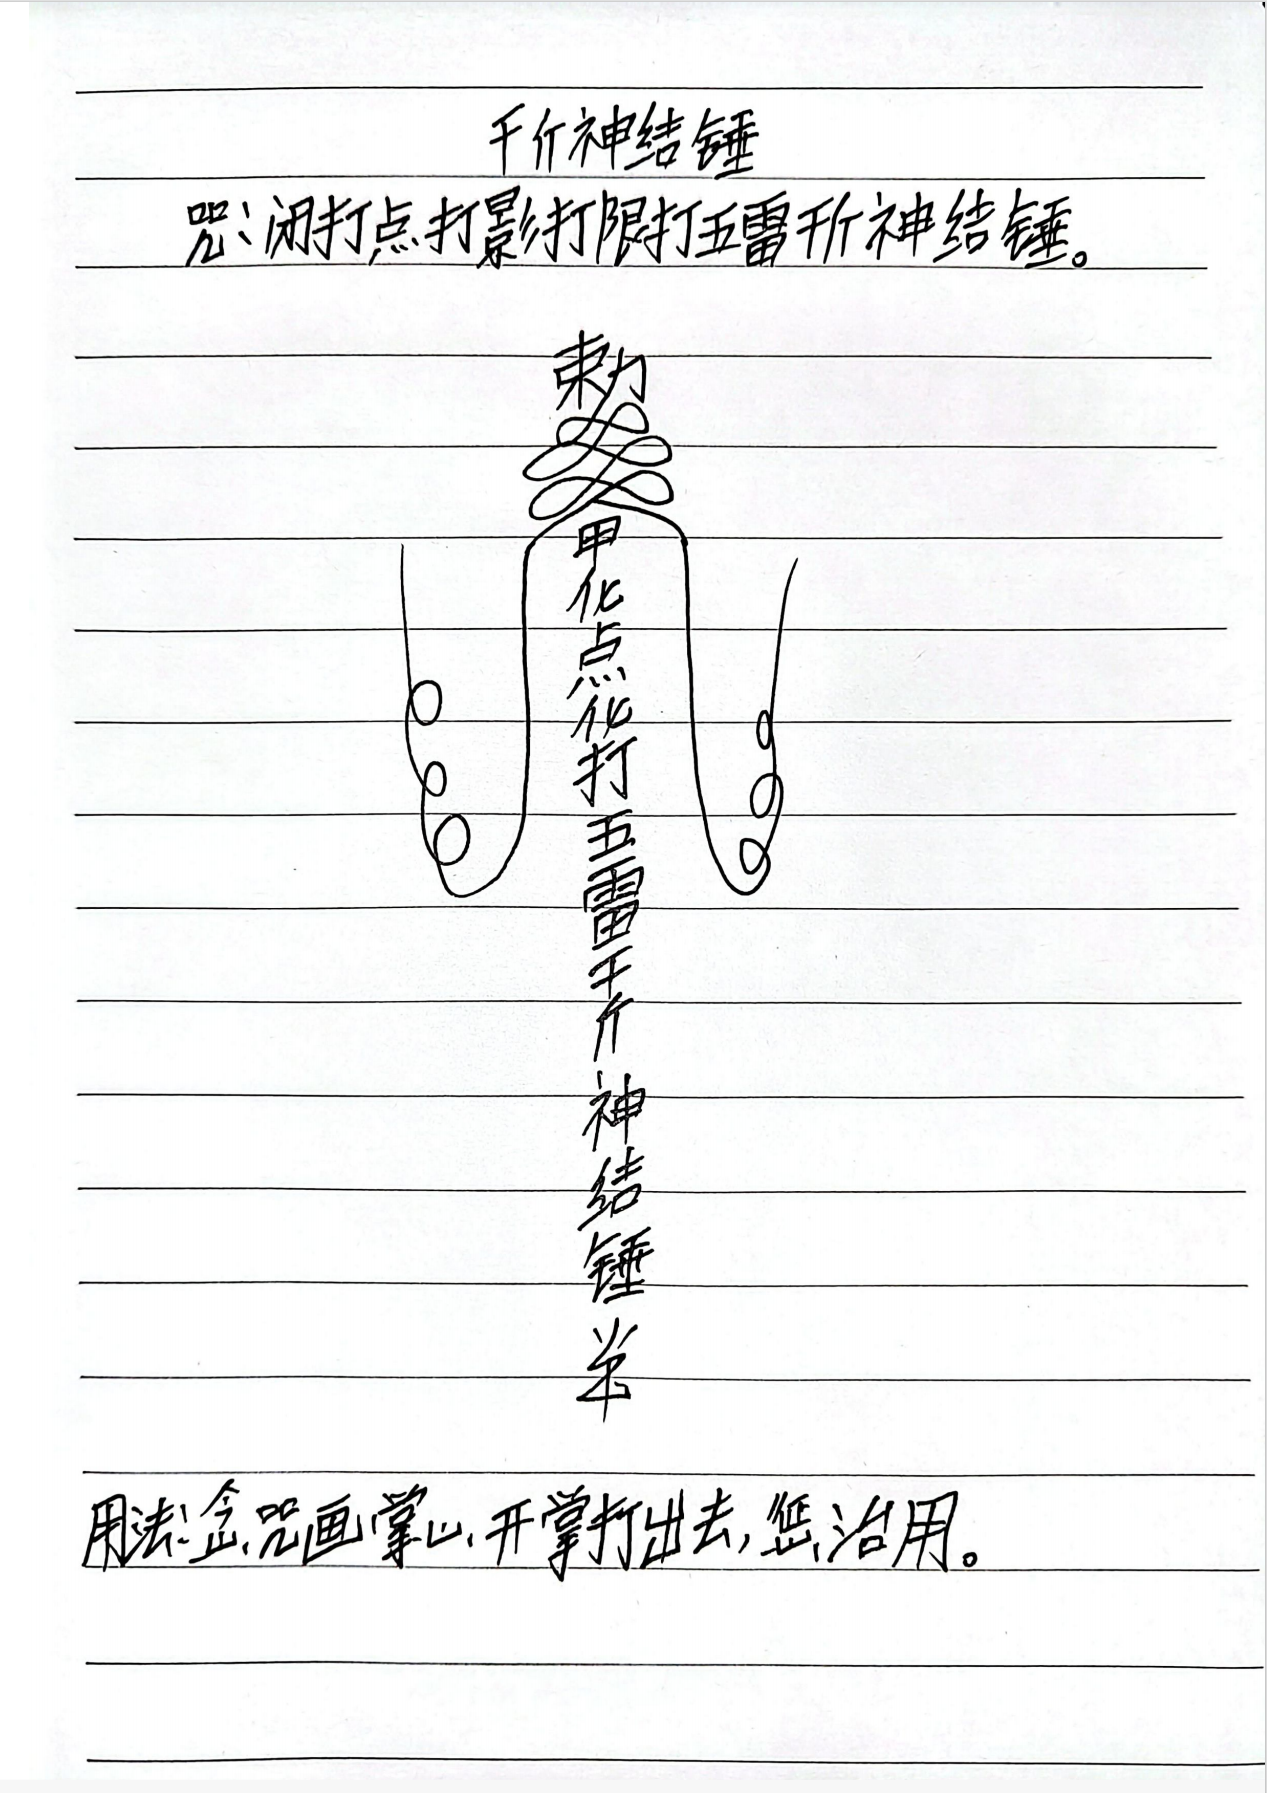 千斤神结锤
咒:闭打点打影打限打五雷千斤神结锤。
勅
甲
化
点
化
打
五
雷
千
斤
神
结
锤
用法:念咒画掌心,开掌打出去,惩治用。